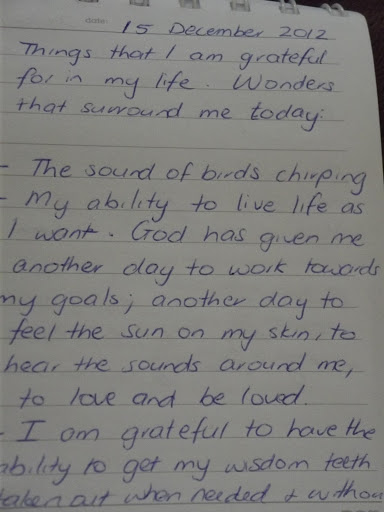 date: 15 December 2012
Things that I am grateful
for in my life. Wonders
that surround me today:
- The sound of birds chirping
- My ability to live life as
I want. God has given me
another day to work towards
my goals; another day to
feel the sun on my skin, to
hear the sounds around me,
to love and be loved.
- I am grateful to have the
ability to get my wisdom teeth
taken out when needed &